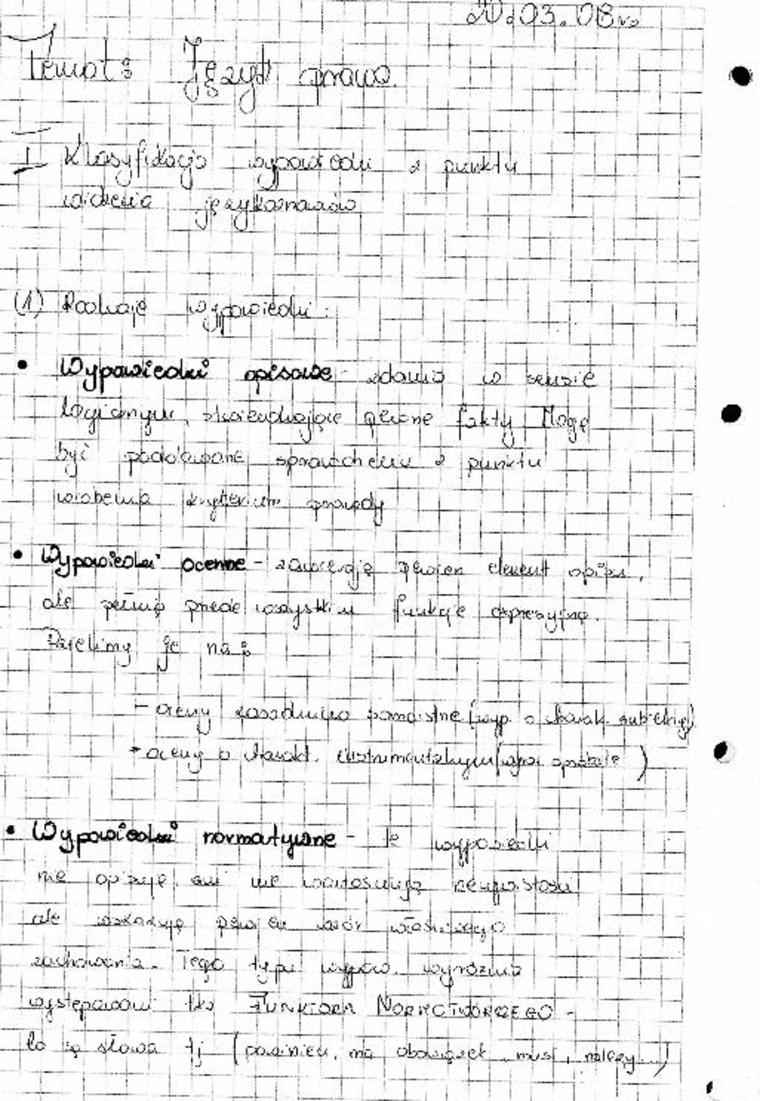 20.03.08r.
Temat: Język prawa.
I Klasyfikacja wypowiedzi z punktu
widzenia językoznawców
(1) Rodzaje wypowiedzi:
• Wypowiedzi opisowe - zdania w sensie
logicznym, stwierdzające pewne fakty Mogą
być poddawane sprawdzeniu z punktu
widzenia kryterium prawdy
• Wypowiedzi ocenne - zawierają pewien element opisu,
ale pełnią przede wszystkim funkcje ekspresyjną.
Dzielimy je na:
- oceny zasadniczo samoistne (wyp. o charak. subiekty)
- oceny o charakt. instrumentalnym (wyp.
• Wypowiedzi normatywne - te wypowiedzi
nie opisują ani nie wartościują rzeczywistości
ale wskazują pewien wzór właściwego
zachowania. Tego typu wypow. wyróżnia
występowanie tzw FUNKTORA NORMOTWÓRCZEGO -
to są słowa tj (powinien, ma obowiązek, musi, należy...)